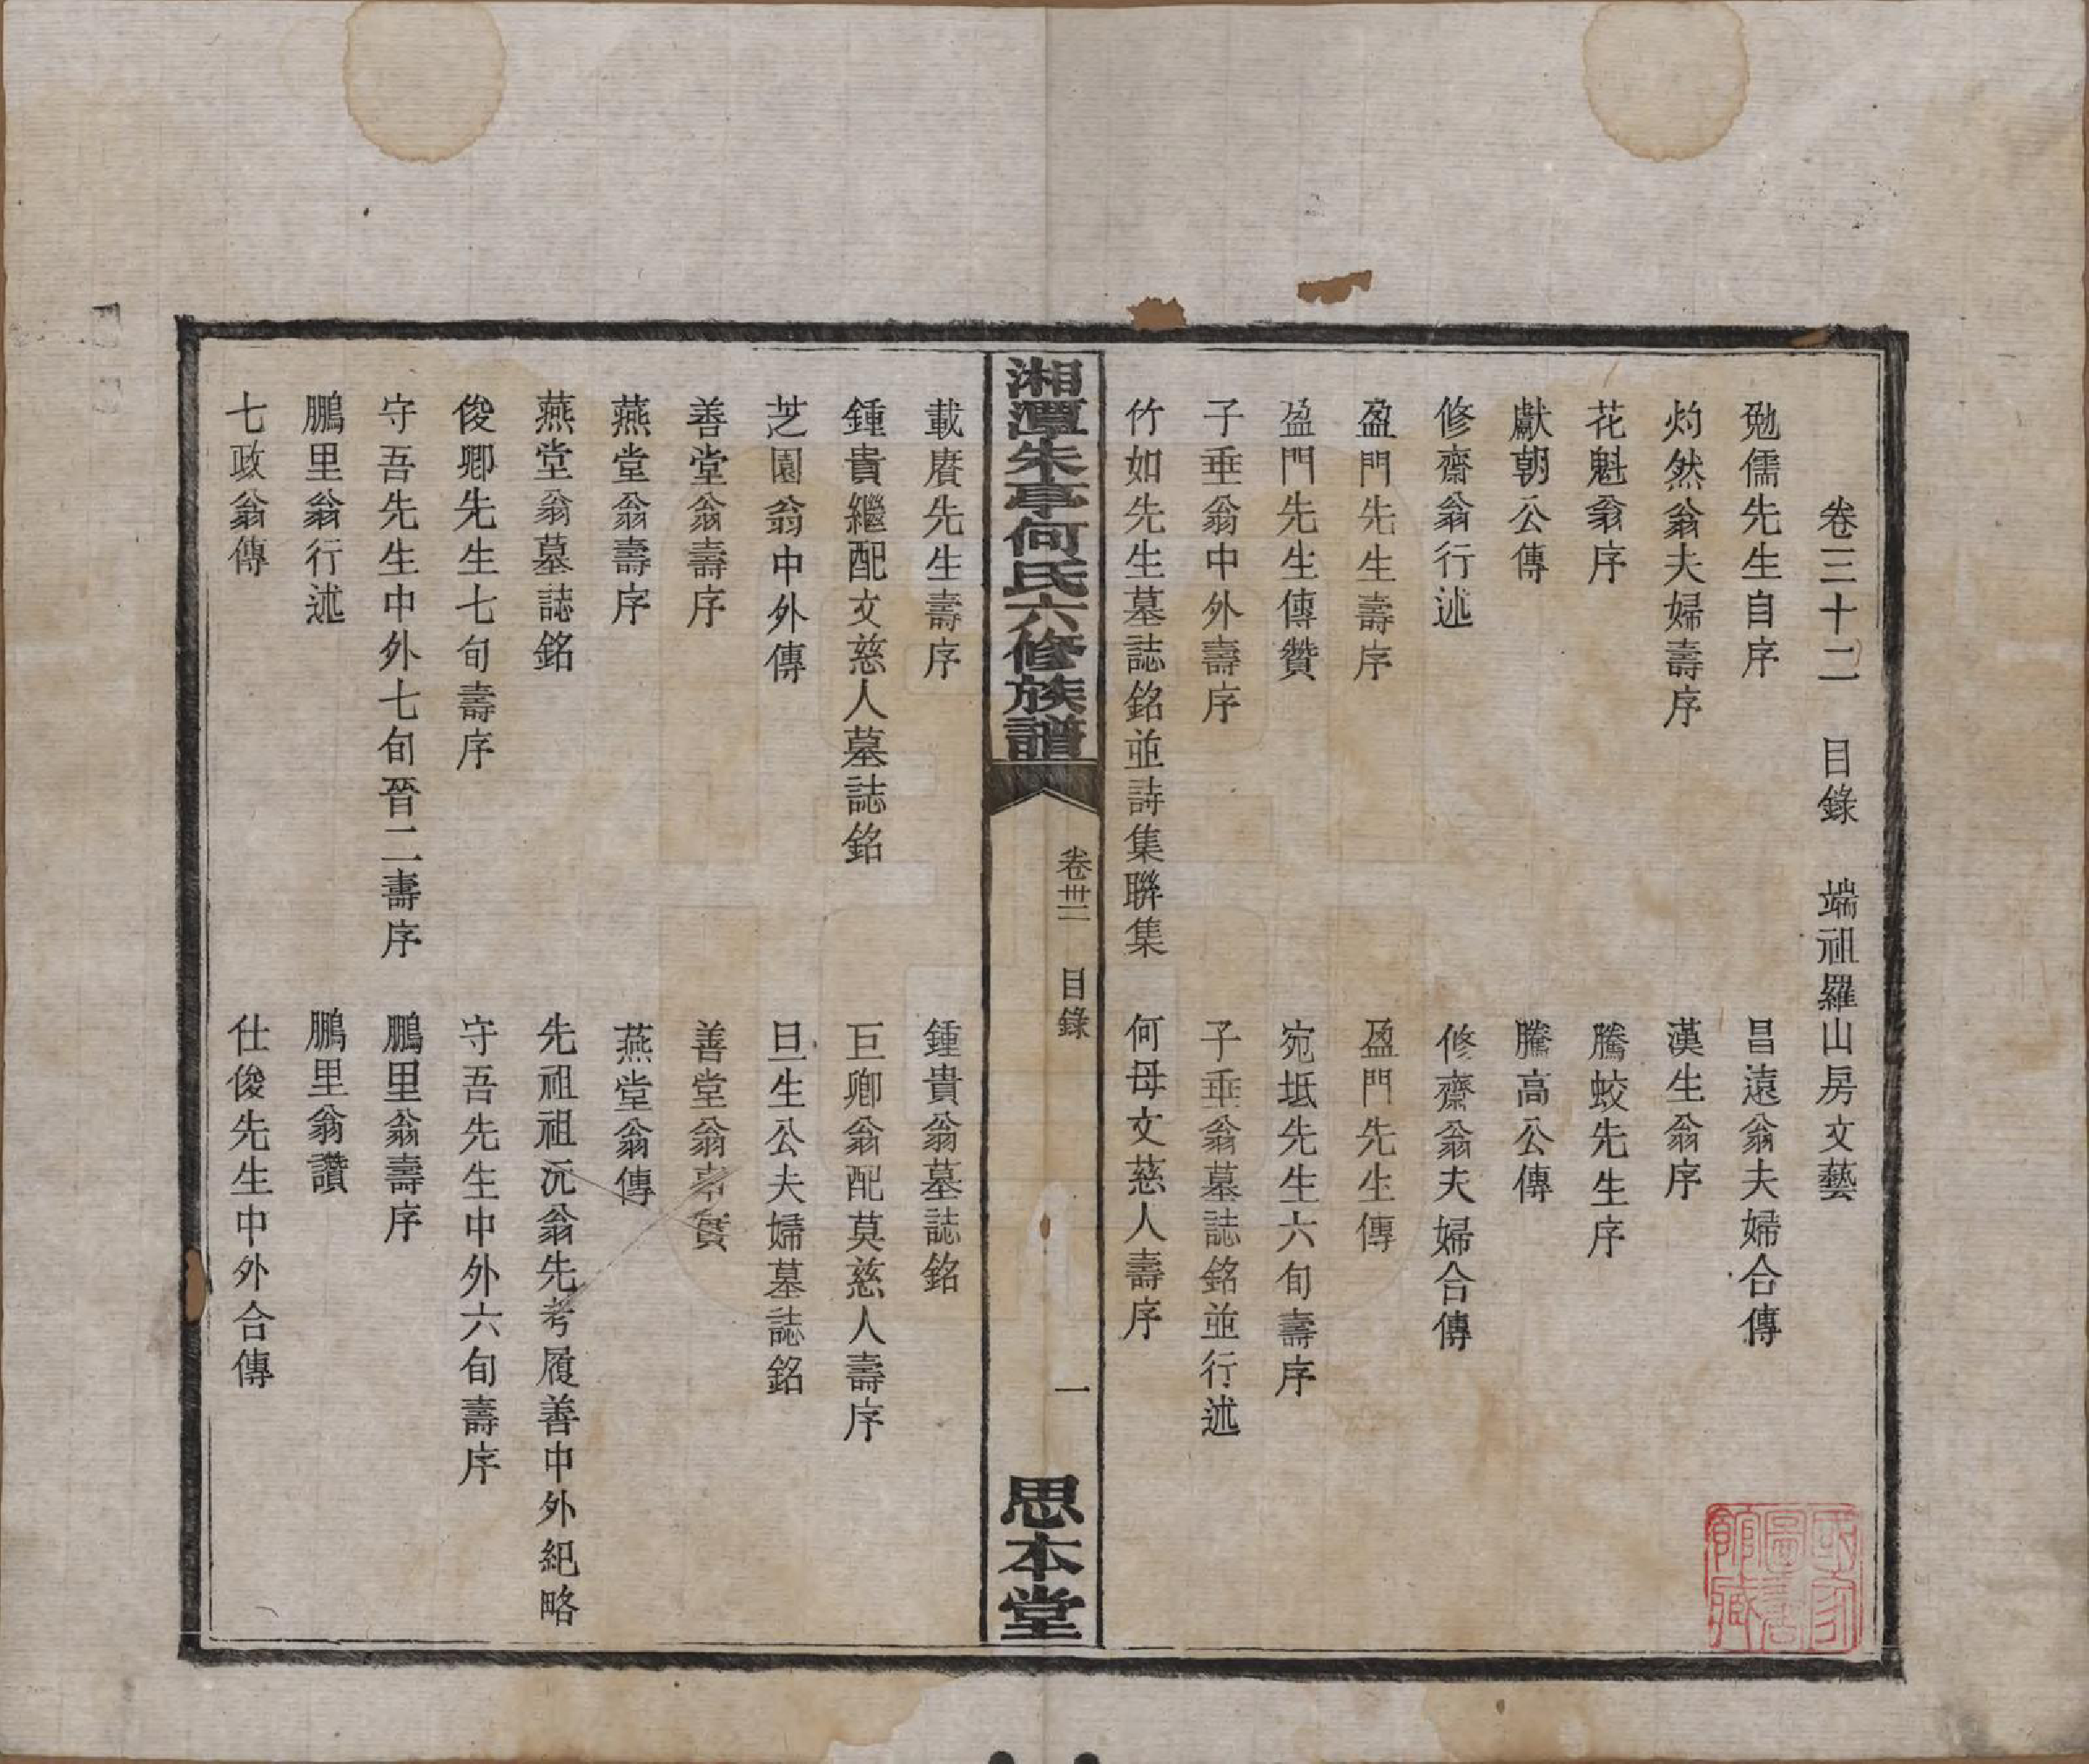 卷三十二　目錄　端祖羅山房文藝
勉儒先生自序　昌遠翁夫婦合傳
灼然翁夫婦壽序　漢生翁序
花魁翁序　騰蛟先生序
獻朝公傳　騰高公傳
修齋翁行述　修齋翁夫婦合傳
盈門先生壽序　盈門先生傳
盈門先生傳贊　宛坻先生六旬壽序
子垂翁中外壽序　子垂翁墓誌銘並行述
竹如先生墓誌銘並詩集聯集　何母文慈人壽序
湘潭朱亭何氏六修族譜　卷卅二　目錄　一　思本堂
載賡先生壽序　鍾貴翁墓誌銘
鍾貴繼配文慈人墓誌銘　巨卿翁配莫慈人壽序
芝園翁中外傳　旦生公夫婦墓誌銘
善堂翁壽序　善堂翁事實
燕堂翁壽序　燕堂翁傳
燕堂翁墓誌銘　先祖祖沅翁先考履善中外紀略
俊卿先生七旬壽序　守吾先生中外六旬壽序
守吾先生中外七旬晉二壽序　鵬里翁壽序
鵬里翁行述　鵬里翁讚
七政翁傳　仕俊先生中外合傳
國家圖書館藏